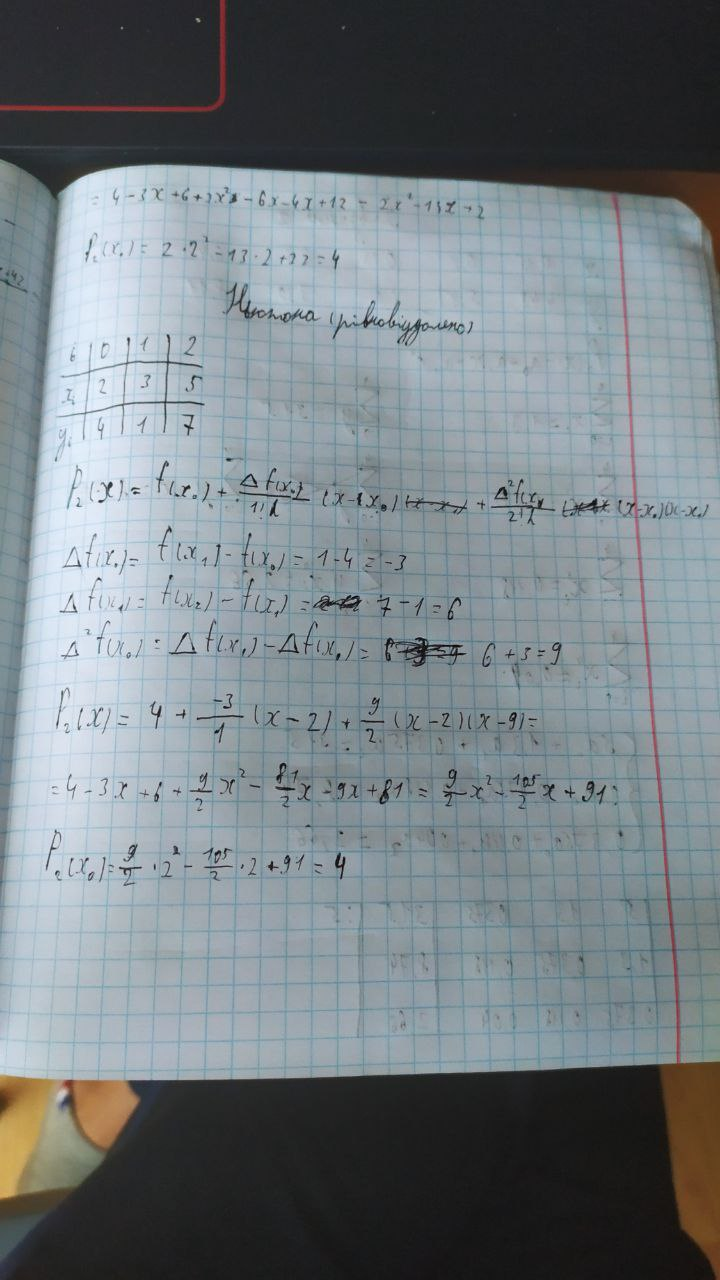 = 4 - 3x + 6 + 2x² - 6x - 4x + 12 = 2x² - 13x + 2
P₂(x₀) = 2 · 2² - 13 · 2 + 22 = 4
Ньютона (рівновіддалено)
i | 0 | 1 | 2
xᵢ | 2 | 3 | 5
yᵢ | 4 | 1 | 7
P₂(x) = f(x₀) + Δf(x₀)/1!h (x - x₀) + Δ²f(x₀)/2!h (x-x₀)(x-x₁)
Δf(x₀) = f(x₁) - f(x₀) = 1 - 4 = -3
Δf(x₁) = f(x₂) - f(x₁) = 7 - 1 = 6
Δ²f(x₀) = Δf(x₁) - Δf(x₀) = 6 + 3 = 9
P₂(x) = 4 + -3/1 (x - 2) + 9/2 (x - 2)(x - 9) =
= 4 - 3x + 6 + 9/2 x² - 81/2 x - 9x + 81 = 9/2 x² - 105/2 x + 91
P₂(x₀) = 9/2 · 2² - 105/2 · 2 + 91 = 4